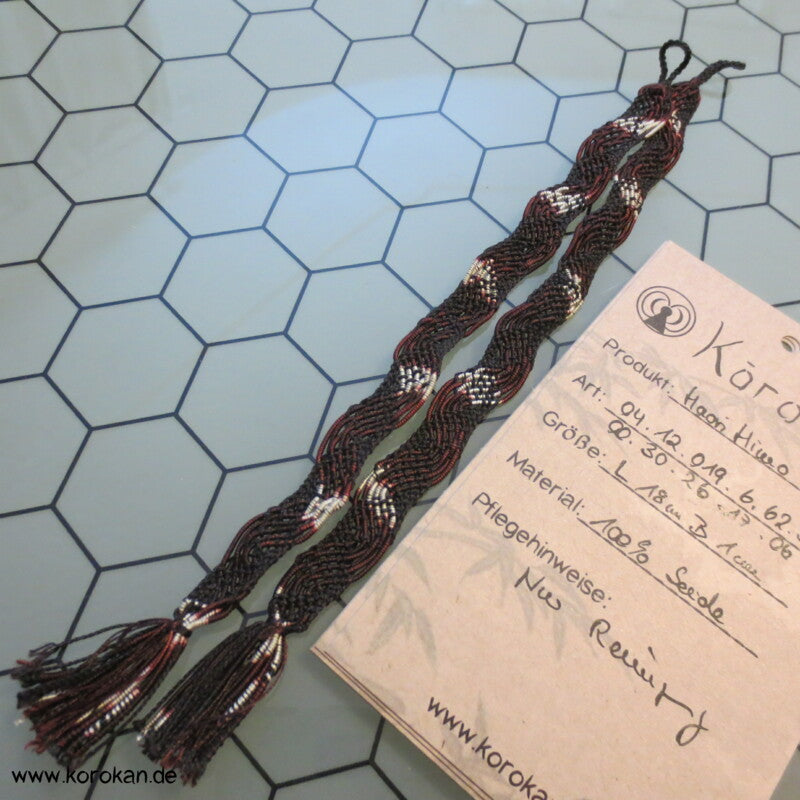 Kōro
Produkt: Haori Himo
Art: 04.12.019.6.62.
00.30.26.17.06
Größe: L 18cm B 1cm
Material: 100% Seide
Pflegehinweise:
Nur Reinigung
www.koroka
www.korokan.de